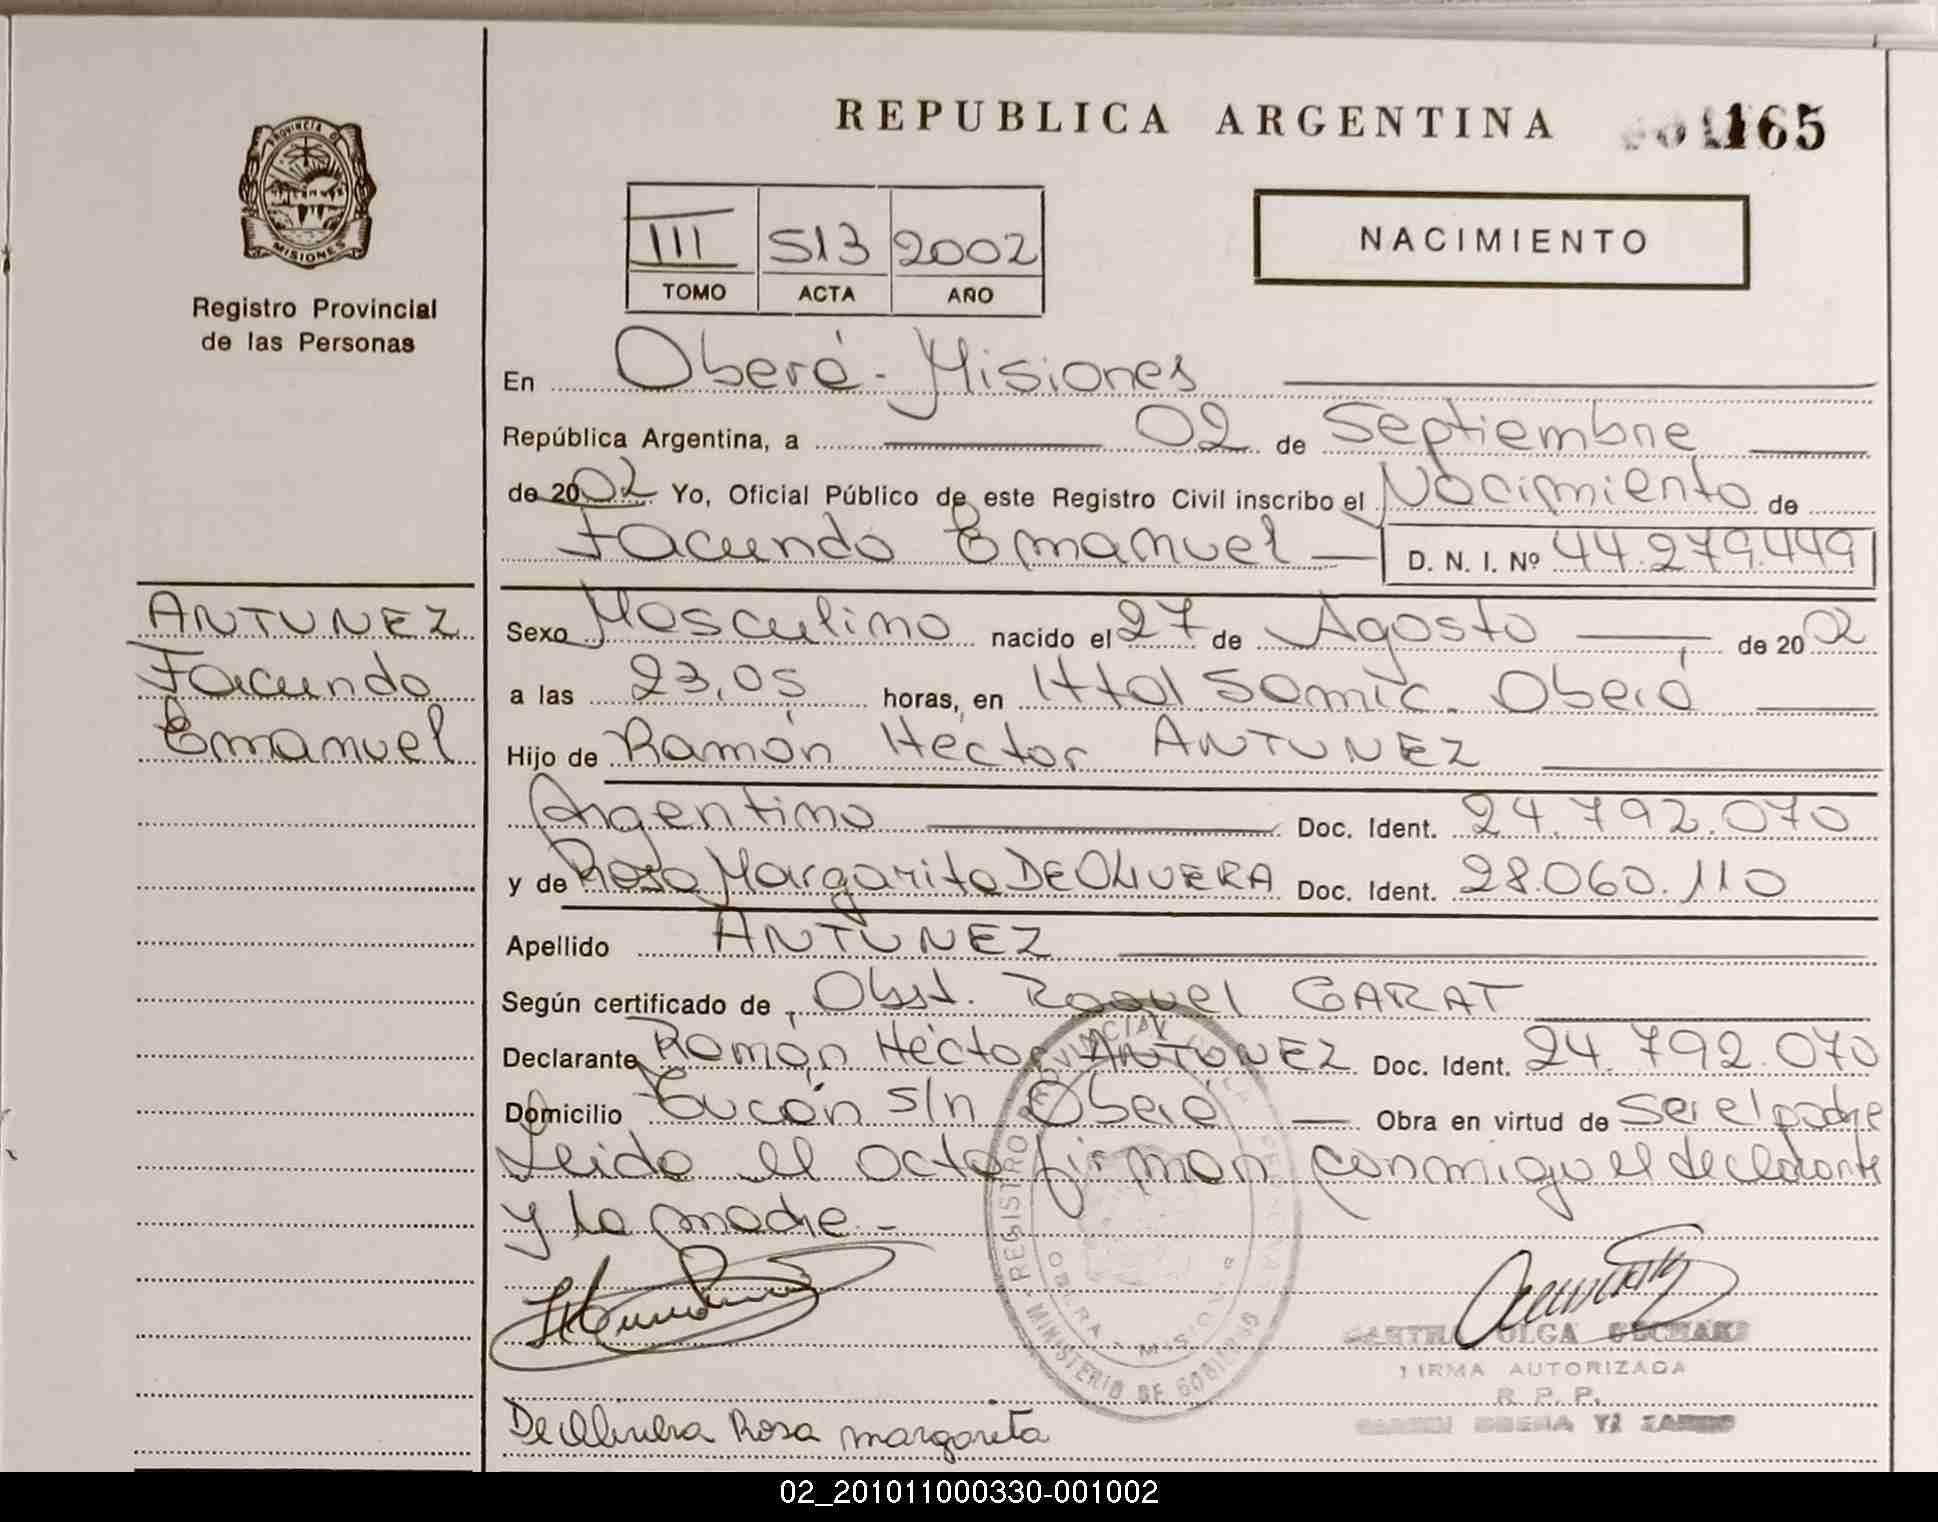 REPUBLICA ARGENTINA
165
PROVINCIA DE
MISIONES
Registro Provincial
de las Personas
III 513 2002
TOMO ACTA AÑO
NACIMIENTO
En Oberá - Misiones
República Argentina, a 02 de Septiembre
de 2002 Yo, Oficial Público de este Registro Civil inscribo el Nacimiento de
Facundo Emanuel D. N. I. Nº 44.279.449
ANTUNEZ
Facundo
Emanuel
Sexo Masculino nacido el 27 de Agosto de 2002
a las 23,05 horas, en Httal Samic. Oberá
Hijo de Ramón Hector ANTUNEZ
Argentino Doc. Ident. 24.792.070
y de Rosa Margarita DE OLIVERA Doc. Ident. 28.060.110
Apellido ANTUNEZ
Según certificado de Obst. Raquel GARAT
Declarante Ramón Héctor ANTUNEZ Doc. Ident. 24.792.070
Domicilio Tucán s/n Oberá Obra en virtud de ser el padre
Leida el acta firman conmigo el declarante
y la madre.-
REGISTRO PROVINCIAL DE LAS PERSONAS
OBERA - MISIONES
MINISTERIO DE GOBIERNO
OLGA
FIRMA AUTORIZADA
R. P. P.
De Olivera Rosa margarita
02_201011000330-001002